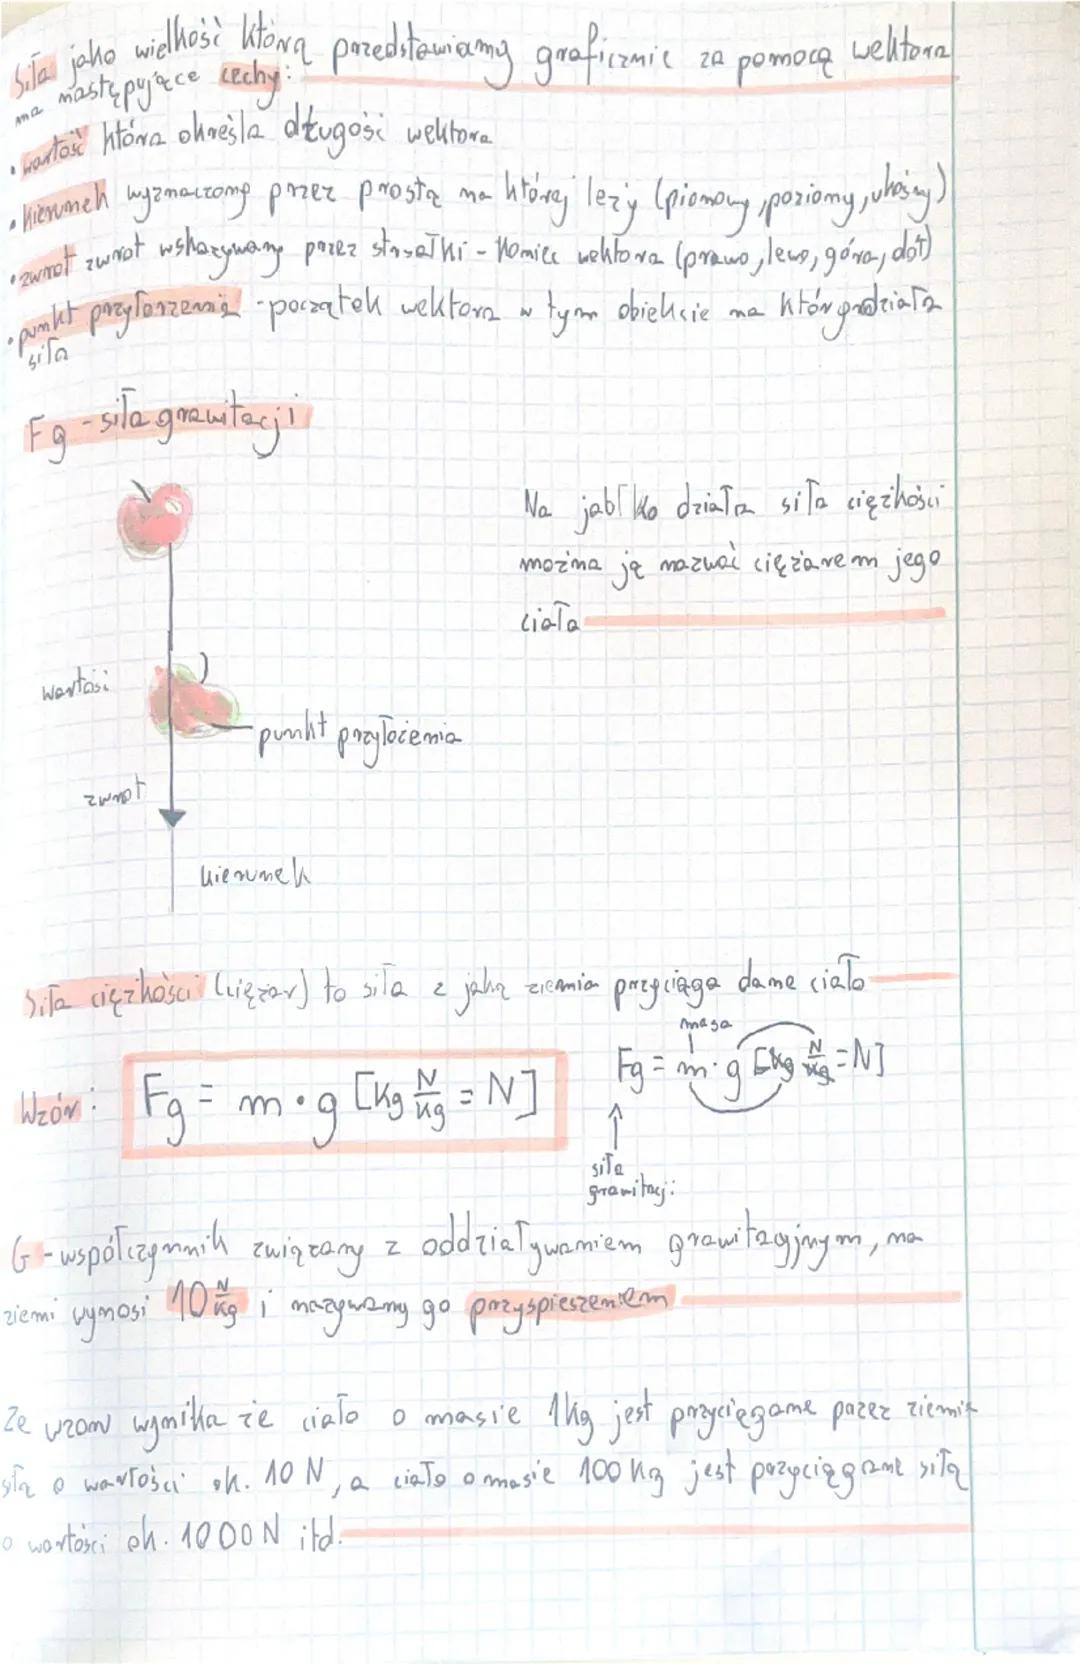 Siła jako wielkość którą przedstawiamy graficznie za pomocą wektora
ma następujące cechy:
• wartość która określa długość wektora
• kierunek wyznaczony przez prostą na której leży (pionowy, poziomy, ukośny)
• zwrot zwrot wskazywany przez strzałki - koniec wektora (prawo, lewo, góra, dół)
• punkt przyłorzenia - początek wektora w tym obiekcie na który działa
siła
Fg - siła grawitacji
Na jabłko działa siła ciężkości
można ją nazwać ciężarem jego
ciała
wartość
punkt przyłożenia
zwrot
kierunek
Siła ciężkości (ciężar) to siła z jaką ziemia przyciąga dane ciało
masa
Wzór: Fg = m • g [kg N/kg = N]
Fg = m • g [kg N/kg = N]
siła
grawitacji
G - współczynnik związany z oddziaływaniem grawitacyjnym, na
ziemi wynosi 10 N/kg i nazywamy go przyspieszeniem
Ze wzoru wynika że ciało o masie 1kg jest przyciągane przez ziemię
siłą o wartości ok. 10 N, a ciało o masie 100 kg jest przyciągane siłą
o wartości ok. 1000N itd.